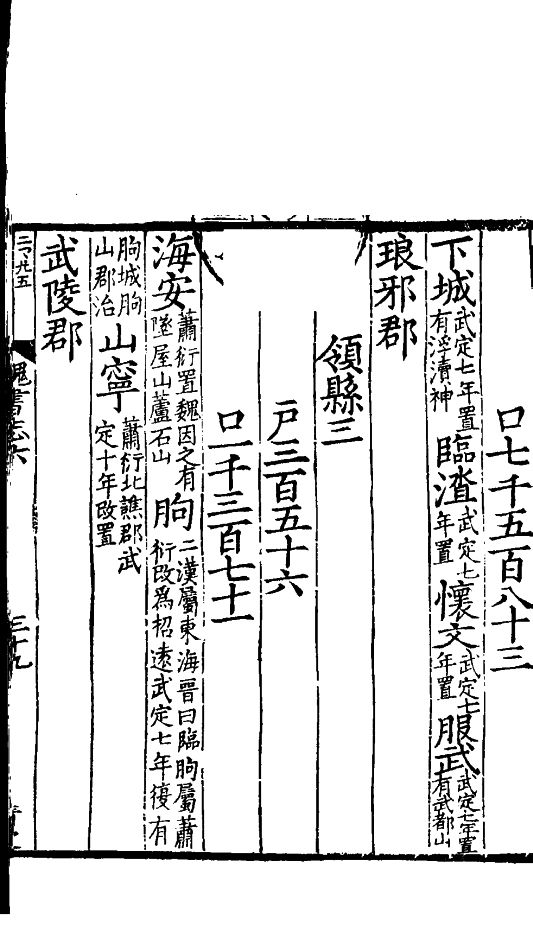 口七千五百八十三
下城武定七年置有浮瀆神臨渣武定七年置懷文武定七年置服武武定七年置有武都山
琅邪郡
領縣三
戸三百五十六
口一千三百七十一
海安蕭衍置魏因之有墜屋山蘆石山朐二漢屬東海晉曰臨朐屬蕭衍改爲招遠武定七年復有
朐城朐山郡治山寧蕭衍北譙郡武定十年改置
武陵郡
魏書志六
三十九